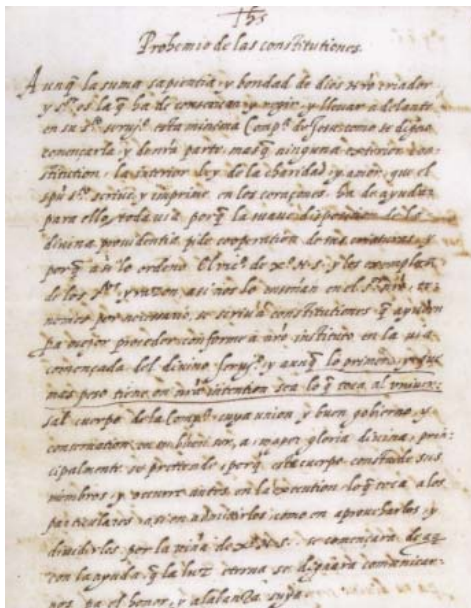 Ihs
Prohemio de las constitutiones
Aunq̃ la suma sapientia, y bondad de dios nr̃o criador
y s.or es la q̃ ha de conseruar, y regir, y lleuar adelante
en su s.to seruy.o esta minima Comp.a de Jesu como se digno
començarla, y de nr̃a parte, mas q̃ ninguna exterior con
stitution, la interior ley de la charidad, y amor, que el
spũ s.to scriue, y imprime en los coraçones, ha de ayudar
para ello, todauia porq̃ la suaue disposicion de la
diuina prouidentia pide cooperation de sus criaturas, y
porq̃ asi lo ordeno el vic.o de x.o N. S. y los exemplos
de los s.tos y razon, asi nos lo enseñan en el S. nr̃o, te-
nemos por necesario, se scriuan constitutiones q̃ ayuden
pa mejor proceder conforme a nr̃o instituto en la uia
començada del diuino seruy.o y aunq̃ lo primero, y que
mas peso tiene en nr̃a intention sea lo q̃ toca al vniuer-
sal cuerpo de la Comp.a cuya union, y buen gobierno, y
conseruation en su buen ser, a mayor gloria diuina, prin-
cipalmente se pretende, porq̃ este cuerpo consta de sus
miembros, y occurre antes en la execution lo q̃ toca a los
particulares, asi en admitirlos, como en aprouecharlos, y
diuidirlos por la viña de x.o N. S. se començara de aq̃
con la ayuda q̃ la luz eterna se dignara comunicar
nos pa el honor, y alabanza suya